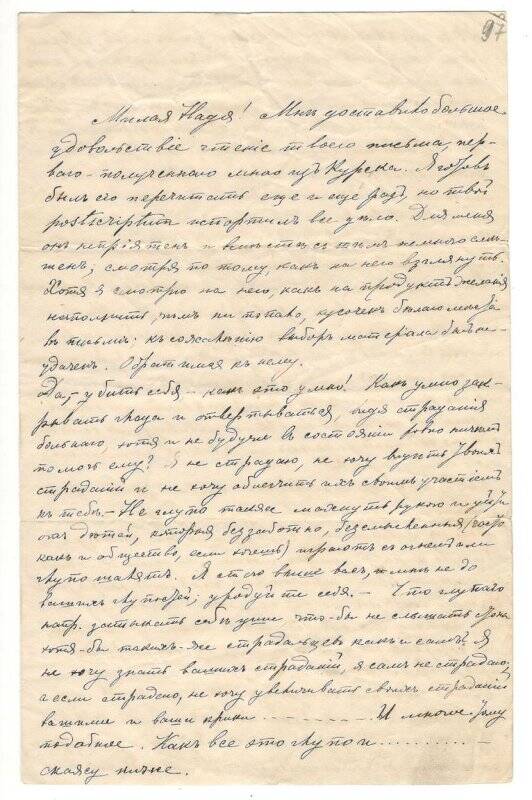 97
Милая Надя! Мнѣ доставило большое
удовольствіе чтеніе твоего письма, пер-
ваго полученнаго мною изъ Курска. Я готовъ
былъ его перечитать еще и еще разъ, но твой
postscriptum испортилъ все дѣло. Для меня
онъ непріятенъ и вмѣстѣ съ тѣмъ немного смѣ-
шенъ, смотря по тому, какъ на него взглянуть.
Хотя я смотрю на него, какъ на продуктъ желанія
наполнить, чѣмъ ни попало, кусочекъ бѣлаго
въ письмѣ: къ сожалѣнію выборъ матерьала былъ не-
удаченъ. Обратимся къ нему.
Да, - убить себя - какъ это умно! Какъ умно зак-
рывать глаза и отвертываться, видя страданія
больнаго, хотя и не будучи въ состояніи ровно ничѣмъ
помочь ему? Я не страдаю, не хочу видѣть твоихъ
страданій и не хочу облегчить ихъ своимъ участіемъ
къ тебѣ. - Не глупо также махнуть рукою и уйти
отъ дѣтей, которыя беззаботно, безсмысленно
какъ и общество, если хочешь) играютъ съ огнемъ или
глупо шалятъ. Я стою выше васъ, и мнѣ не до
вашихъ глупостей; уродуйте себя. - Что глупаго
напр. затыкать себѣ уши что-бы не слышать
хотя-бы такихъ-же страдальцевъ какъ и самъ? Я
не хочу знать вашихъ страданій, я самъ не страдаю,
а если страдаю, не хочу увеличивать своихъ страданій
вашими и ваши крики ............ И многое тому
подобное. Какъ все это глупо и ............ -
скажу ниже.